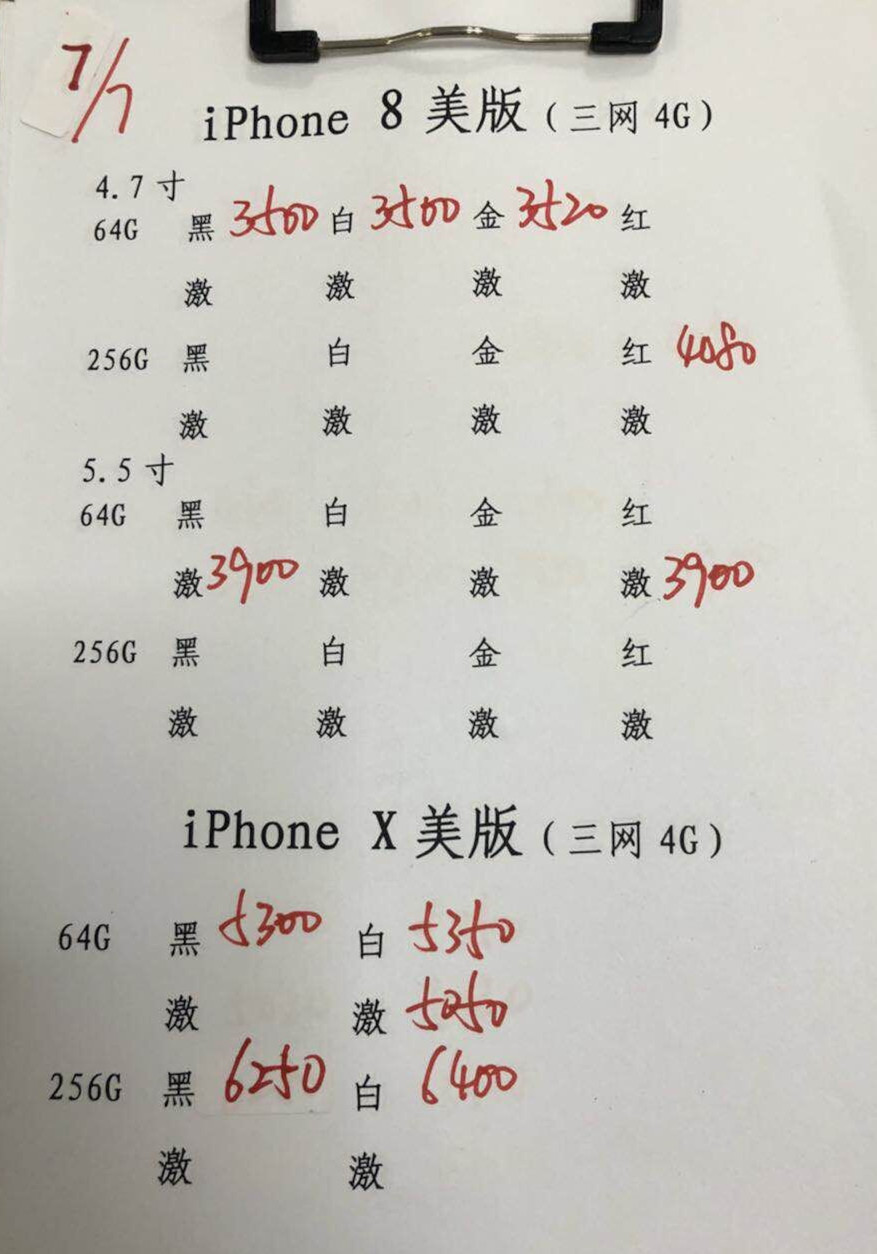 7/7
iPhone 8 美版（三网 4G）
4.7 寸
64G 黑 3500 白 3500 金 3520 红
激 激 激 激
256G 黑 白 金 红 4080
激 激 激 激
5.5 寸
64G 黑 白 金 红
激 3900 激 激 激 3900
256G 黑 白 金 红
激 激 激 激
iPhone X 美版（三网 4G）
64G 黑 5300 白 5350
激 激 5050
256G 黑 6250 白 6400
激 激